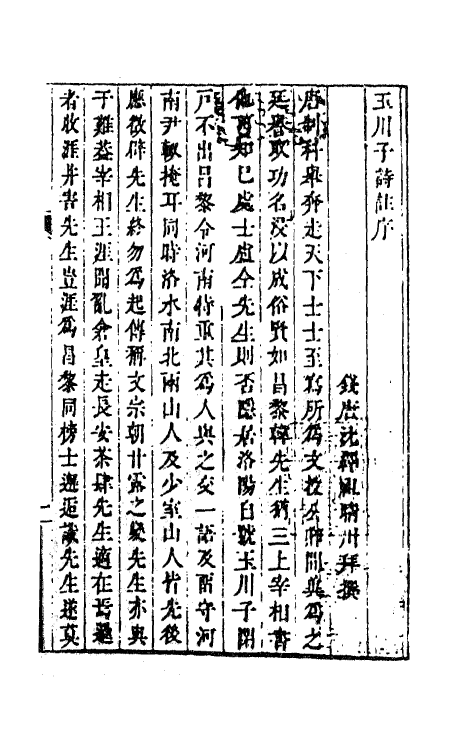 玉川子詩註序
錢唐沈 拜撰
唐制科舉奔走天下士士至寫所為文投 時間 為之
延譽取功名沒以成俗賢如昌黎韓先生 三上宰相書
知己處士盧仝先生則否隱居洛陽自號玉川子閉
戶不出昌黎令河南特重其為人與之交一語及留守河
南尹輒掩耳同時洛水南北兩山人及少室山人皆先後
應徵辟先生終勿為起傳稱文宗朝甘露之變先生亦與
于難葢宰相王涯聞亂倉皇走長安茶肆先生適在焉
者收涯并害先生豈涯為昌黎同榜士邂逅識先生遂莫